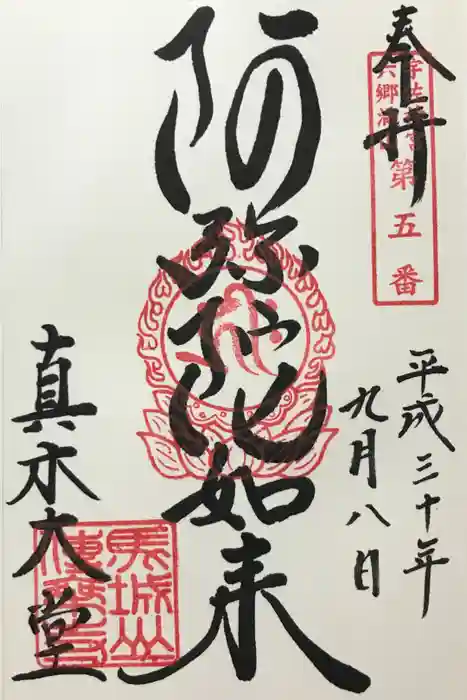 奉拝
宇佐神宮
六郷満山
第五番
平成三十年
九月八日
阿弥陀如来
真木大堂
馬城山